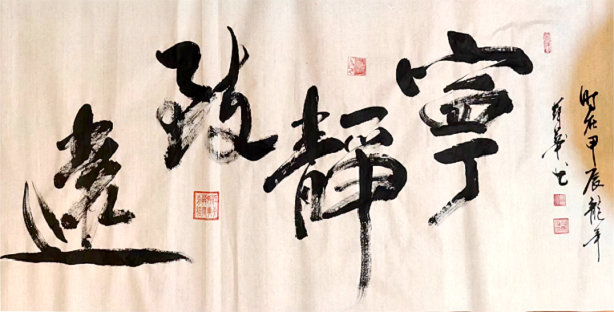 寧靜致遠
時在甲辰龍年